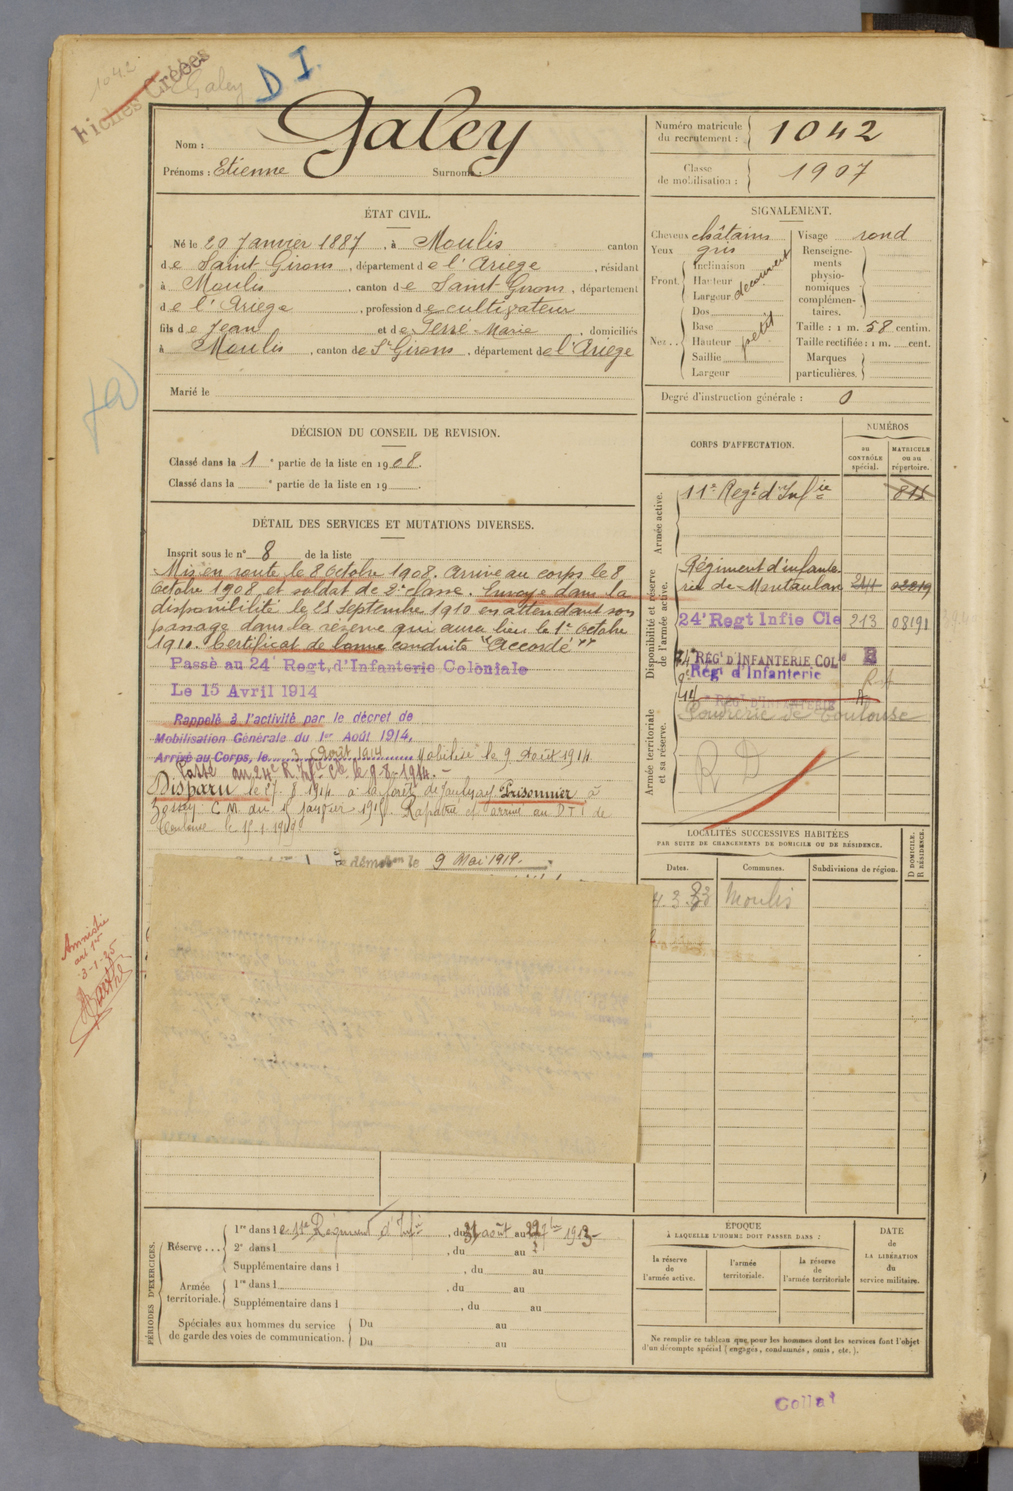 1042
Galey
Fiches Créées
D I.
Nom : Galey
Prénoms : Etienne Surnoms :
Numéro matricule du recrutement : 1042
Classe de mobilisation : 1907
ÉTAT CIVIL.
Né le 20 Janvier 1887, à Moulis canton
de Saint Girons, département de l'Ariège, résidant
à Moulis, canton de Saint-Girons, département
de l'Ariège, profession de cultivateur
fils de Jean et de Marie, domiciliés
à Moulis, canton de St Girons, département de l'Ariège
Marié le
SIGNALEMENT.
Cheveux châtains
Yeux gris
Front
Inclinaison
Hauteur
Largeur
découvert
Nez..
Dos
Base
Hauteur
Saillie
Largeur
petit
Visage rond
Renseigne-
ments
physio-
nomiques
complémen-
taires.
Taille : 1 m. 58 centim.
Taille rectifiée : 1 m. cent.
Marques
particulières.
Degré d'instruction générale : 0
DÉCISION DU CONSEIL DE REVISION.
Classé dans la 1e partie de la liste en 1908.
Classé dans la e partie de la liste en 19 .
DÉTAIL DES SERVICES ET MUTATIONS DIVERSES.
Inscrit sous le n° 8 de la liste
Mis en route le 8 Octobre 1908. Arrivé au corps le 8
Octobre 1908 et soldat de 2e classe. Envoyé dans la
disponibilité le 25 Septembre 1910 en attendant son
passage dans la réserve qui aura lieu le 1er Octobre
1910. Certificat de bonne conduite "Accordé"
Passé au 24 Regt. d'Infanterie Coloniale
Le 15 Avril 1914
Rappelé à l'activité par le décret de
Mobilisation Générale du 1er Août 1914.
Arrivé au Corps, le 3 Août 1914 Mobilisé le 9 Août 1914
Passé au 24e R. Inf. Cle le 9-8-1914.
Disparu le 27. 8. 1914 à la forêt de Prisonnier à
Zossen Janvier 1915. Rapatrié et arrivé au D.T.I de
le 15-1-1919
le 9 Mai 1919.
CORPS D'AFFECTATION.
NUMÉROS
au
CONTRÔLE
spécial.
MATRICULE
ou au
répertoire.
Armée active.
11e Regt d'Infie
Disponibilité et réserve
de l'armée active.
Régiment d'infante-
rie de Montauban
24e Regt Infie Cle 213 08191
24e RÉGt D'INFANTERIE COLe
Régt d'Infanterie
14e RÉGt D'INFANTERIE
Armée territoriale
et sa réserve.
Poudrerie de Toulouse
R D
LOCALITÉS SUCCESSIVES HABITÉES
PAR SUITE DE CHANGEMENTS DE DOMICILE OU DE RÉSIDENCE.
Dates.
Communes.
Subdivisions de région.
D DOMICILE.
R RÉSIDENCE.
Moulis
Amnistie
art 1er
3-1-25
Barthe
PÉRIODES D'EXERCICES.
Réserve...
1re dans le 11e Régiment d'Infie, du août au 1913
2e dans l , du au
Supplémentaire dans l , du au
Armée
territoriale.
1re dans l , du au
Supplémentaire dans l , du au
Spéciales aux hommes du service
de garde des voies de communication.
Du au
Du au
ÉPOQUE
À LAQUELLE L'HOMME DOIT PASSER DANS :
la réserve
de
l'armée active.
l'armée
territoriale.
la réserve
de
l'armée territoriale
DATE
de
LA LIBÉRATION
du
service militaire.
Ne remplir ce tableau que pour les hommes dont les services font l'objet
d'un décompte spécial (engagés, condamnés, omis, etc.).
Collat